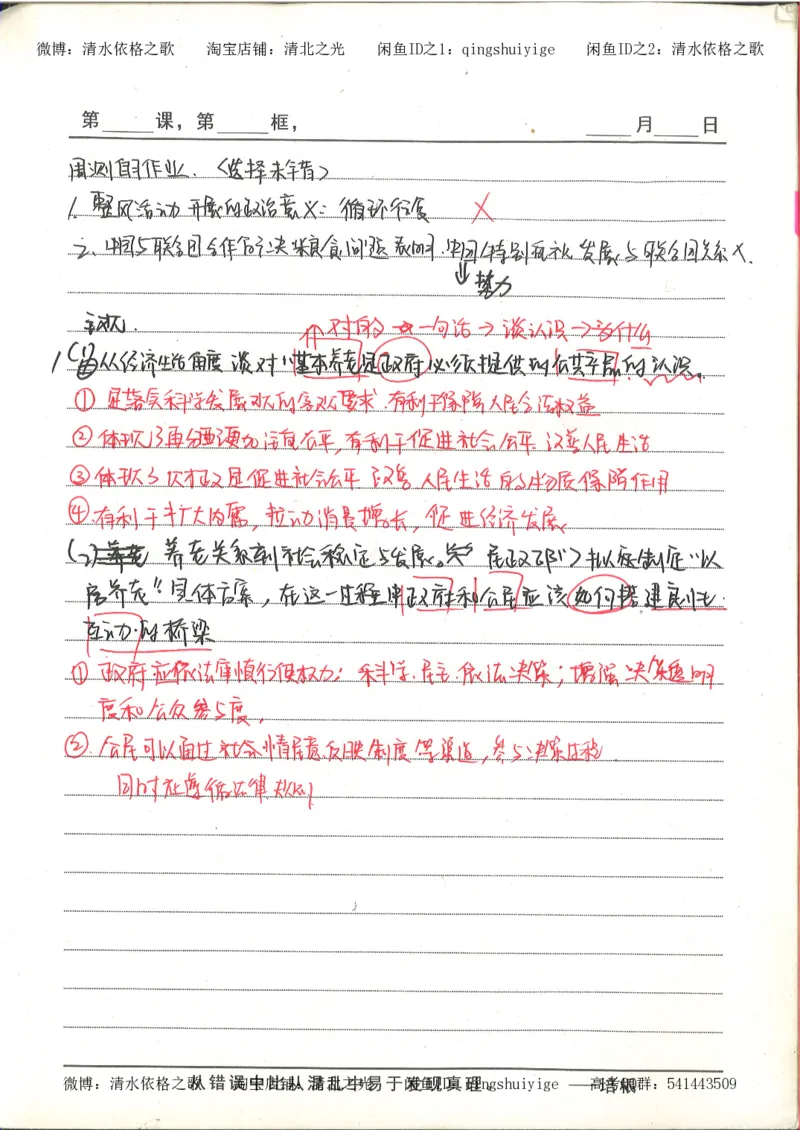 微博：清水依格之歌 淘宝店铺：清北之光 闲鱼ID之1：qingshuiyige 闲鱼ID之2：清水依格之歌
第 课，第 框， 月 日
周测自习作业.（选择未错）
1. 整风活动开展的政治意义：循环往复 ×
2、中国与联合国合作解决粮食问题表明.中国 特别 发展与联合国关系 ×.
努力
主观.
对的 → 一句话 → 谈认识 → 为什么
1 (1) 从经济生活角度谈对"基本养老是政府必须提供的公共产品的认识。
① 是落实科学发展观的客观要求.有利于保障人民合法权益
② 体现了再分配更加注重公平,有利于促进社会公平 改善人民生活
③ 体现了财政是促进社会公平 改善人民生活的物质保障作用
④ 有利于扩大内需,拉动消费增长,促进经济发展
(2) 养老关系到社会稳定与发展。 民政部 拟定制定"以
房养老"具体方案,在这一过程中政府和公民应该如何搭建良性
互动的桥梁
① 政府应依法审慎行使权力;科学.民主.依法决策;增强决策透明
度和公众参与度,
②.公民可以通过社会情民意反映制度等渠道,参与决策过程.
同时 遵循法律规则
微博：清水依格之歌 淘宝店铺：清北之光 闲鱼ID：qingshuiyige 高考 群：541443509
从错误中比从混乱中易于发现真理。 ——培根